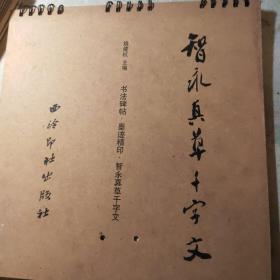 智永真草千字文
书法碑帖·墨迹精印·智永真草千字文
主编
西泠印社出版社